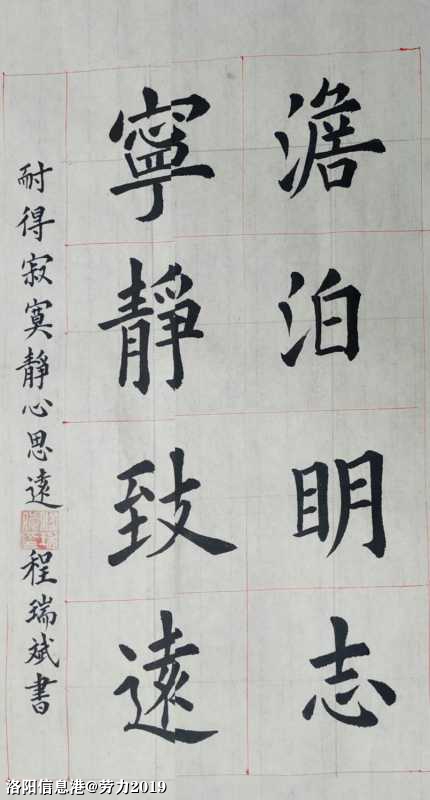 澹泊明志
寧靜致遠
耐得寂寞靜心思遠 程瑞斌書
洛阳信息港@劳力2019